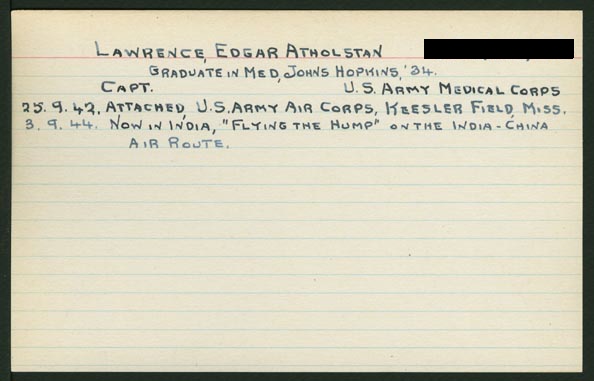 LAWRENCE, EDGAR ATHOLSTAN
GRADUATE IN MED, JOHNS HOPKINS, '34.
CAPT. U.S. ARMY MEDICAL CORPS
25.9.42. ATTACHED U.S. ARMY AIR CORPS, KEESLER FIELD, MISS.
3.9.44. NOW IN INDIA, "FLYING THE HUMP" ON THE INDIA-CHINA
AIR ROUTE.